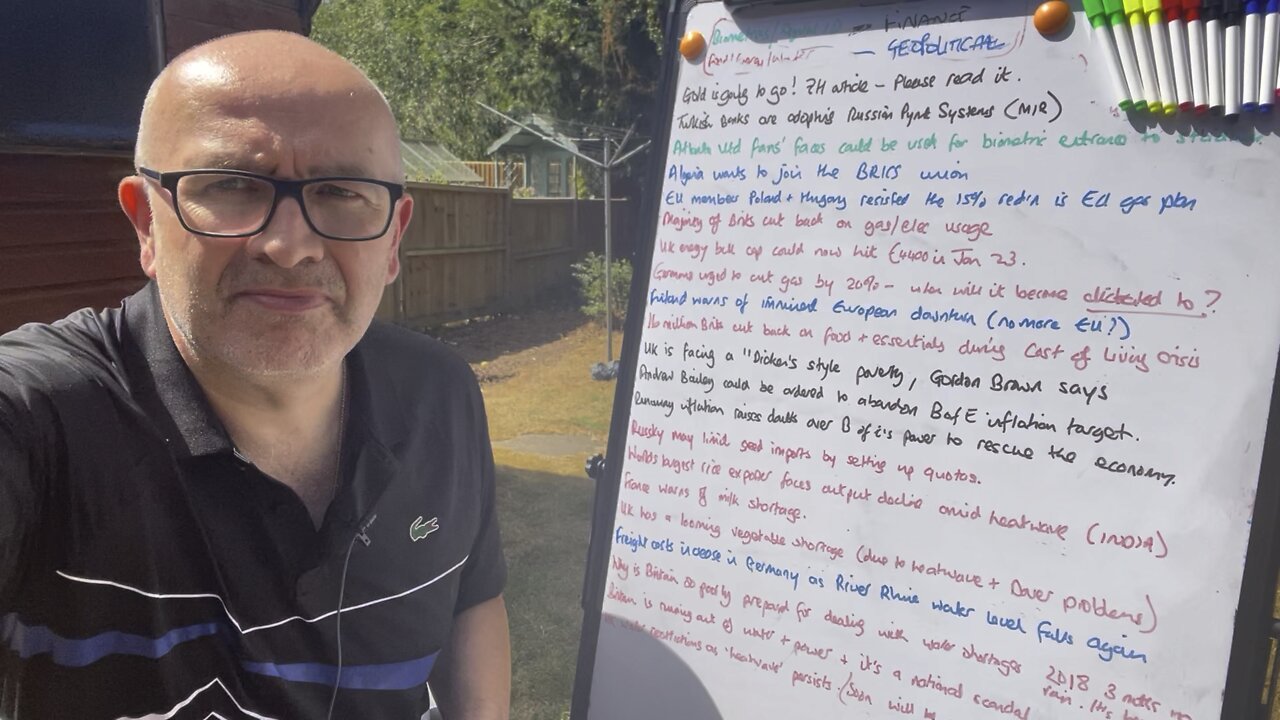 Biometrics/ = FINANCE
Food/Energy/ - GEOPOLITICAL
Gold is going to go! ZH article - Please read it.
Turkish Banks are adopting Russian Pymt Systems (MIR)
Fans' faces could be used for biometric entrance to
Algeria wants to join the BRICS union
EU members Poland + Hungary resisted the 15% redn is EU gas plan
Majority of Brits cut back on gas/elec usage
UK energy bill cap could now hit £4400 in Jan 23.
Germans urged to cut gas by 20% - when will it become dictated to?
Finland warns of imminent European downturn (no more EU?)
16 million Brits cut back on food + essentials during Cost of Living Crisis
UK is facing a "Dicken's style poverty, Gordon Brown says
Andrew Bailey could be ordered to abandon B of E inflation target.
Runaway inflation raises doubts over B of E's power to rescue the economy.
may limit seed imports by setting up quotas.
Worlds largest rice exporter faces output decline amid heatwave (INDIA)
France warns of milk shortage.
UK has a looming vegetable shortage (due to heatwave + Dover problems)
Freight costs increase in Germany as River Rhine water level falls again
Why is Britain so poorly prepared for dealing with water shortages 2018 3 metres
Britain is running out of water + power + it's a national scandal rain.
water restrictions as 'heatwave' persists. (Soon will be